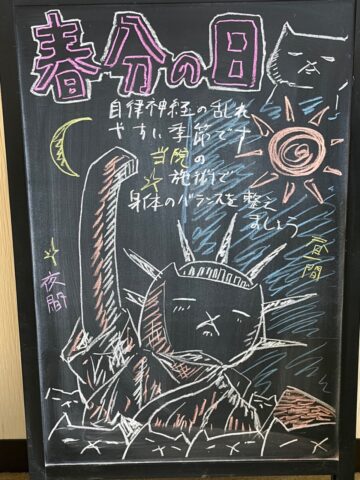 春分の日
自律神経の乱れ
やすい季節です
当院の
施術で
身体のバランスを整え
ましょう
昼間
夜間